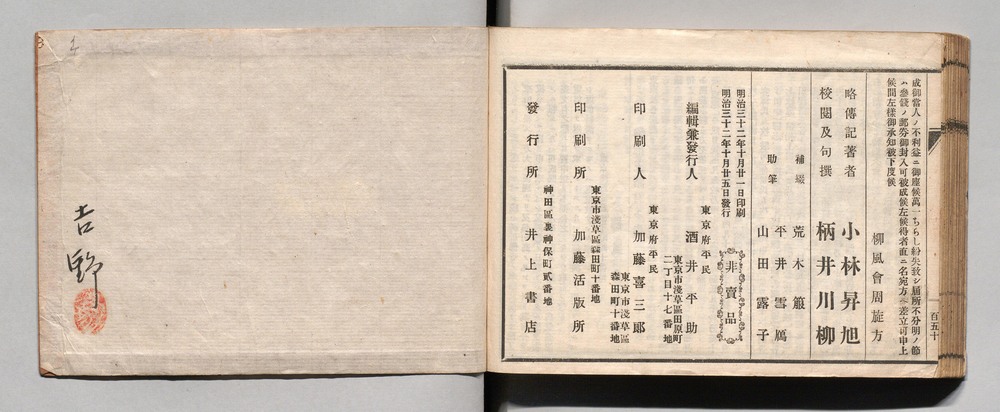 成御當人ノ不利益ニ御座候萬一ちらし紛失致シ届所不分明ノ節
ハ參錢ノ郵券御封入可被成候左候得者直ニ名宛方ヘ差立可申上
候間左樣御承知被下度候
柳風會周旋方
百五十
略傳記著者 小林昇旭
校閱及句撰 柄井川柳
補綴 荒木
助筆 平井雪鴈
山田露子
明治三十二年十月廿一日印刷
明治三十二年十月廿五日發行
非賣品
東京府平民
編輯兼發行人 酒井平助
東京市淺草區田原町
二丁目十七番地
東京府平民
印刷人 加藤喜三郎
東京市淺草區
森田町十番地
東京市淺草區森田町十番地
印刷所 加藤活版所
神田區裏神保町貳番地
發行所 井上書店
吉野